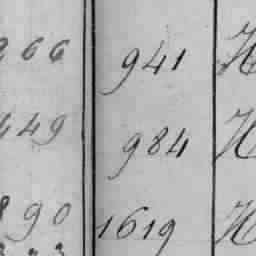 266 941 H
449 984 H
890 1619 H